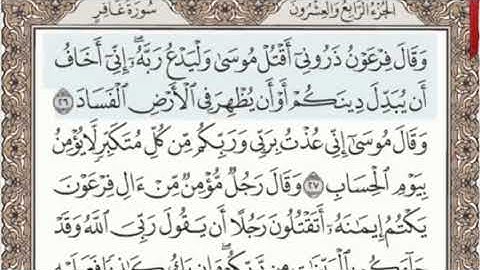 الجزء الرابع والعشرون
سورة غافر
وَقَالَ فِرْعَوْنُ ذَرُونِىٓ أَقْتُلْ مُوسَىٰ وَلْيَدْعُ رَبَّهُۥٓ ۖ إِنِّىٓ أَخَافُ
أَن يُبَدِّلَ دِينَكُمْ أَوْ أَن يُظْهِرَ فِى ٱلْأَرْضِ ٱلْفَسَادَ ٢٦
وَقَالَ مُوسَىٰٓ إِنِّى عُذْتُ بِرَبِّى وَرَبِّكُم مِّن كُلِّ مُتَكَبِّرٍ لَّا يُؤْمِنُ
بِيَوْمِ ٱلْحِسَابِ ٢٧ وَقَالَ رَجُلٌ مُّؤْمِنٌ مِّنْ ءَالِ فِرْعَوْنَ
يَكْتُمُ إِيمَـٰنَهُۥٓ أَتَقْتُلُونَ رَجُلًا أَن يَقُولَ رَبِّىَ ٱللَّهُ وَقَدْ